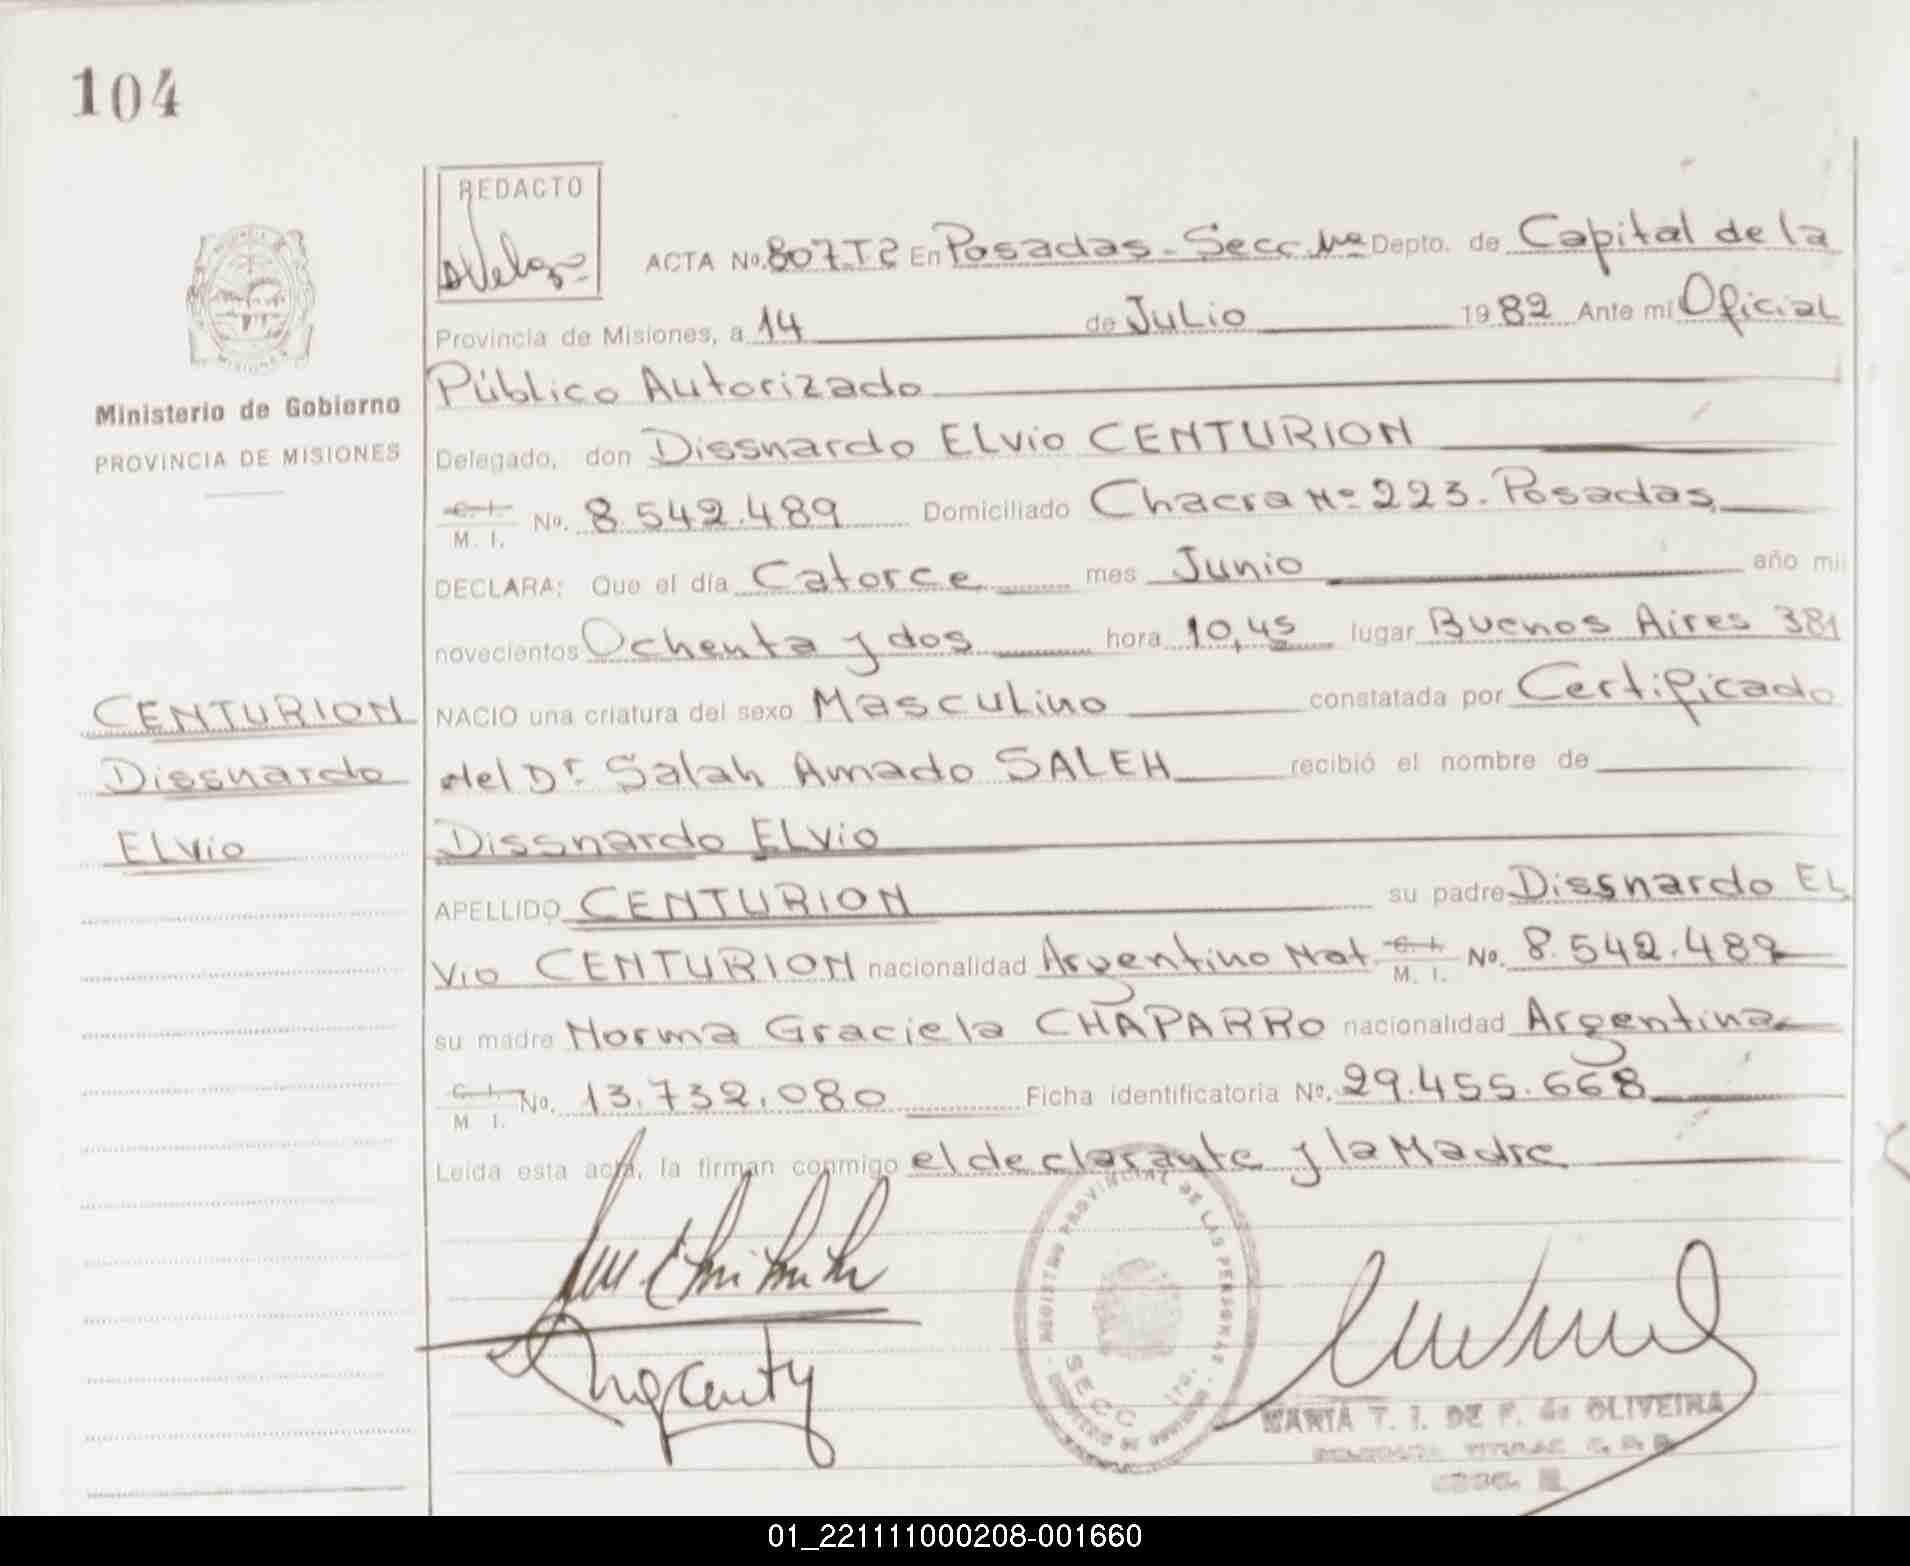 104
REDACTO
ACTA No. 807 T2 En Posadas - Secc. 1ra Depto. de Capital de la
Provincia de Misiones, a 14 de Julio 1982 Ante mí Oficial
Público Autorizado
Ministerio de Gobierno
PROVINCIA DE MISIONES
Delegado, don Dissnardo ELvio CENTURION
C. I. M. I. No. 8.542.489 Domiciliado Chacra Nº 223. Posadas
DECLARA: Que el día Catorce mes Junio año mil
novecientos Ochenta y dos hora 10,45 lugar Buenos Aires 381
CENTURION
Dissnardo
ELvio
NACIO una criatura del sexo Masculino constatada por Certificado
del Dr. Salah Amado SALEH recibió el nombre de
Dissnardo ELvio
APELLIDO CENTURION su padre Dissnardo EL
vio CENTURION nacionalidad Argentino Nat. C. I. M. I. No. 8.542.489
su madre Norma Graciela CHAPARRO nacionalidad Argentina
C. I. M. I. No. 13.732.080 Ficha identificatoria Nº. 29.455.668
Leída esta acta, la firman conmigo el declarante y la Madre
REGISTRO PROVINCIAL DE LAS PERSONAS
SECC. 1ra.
MARIA T. I. DE F. de OLIVEIRA
01_221111000208-001660